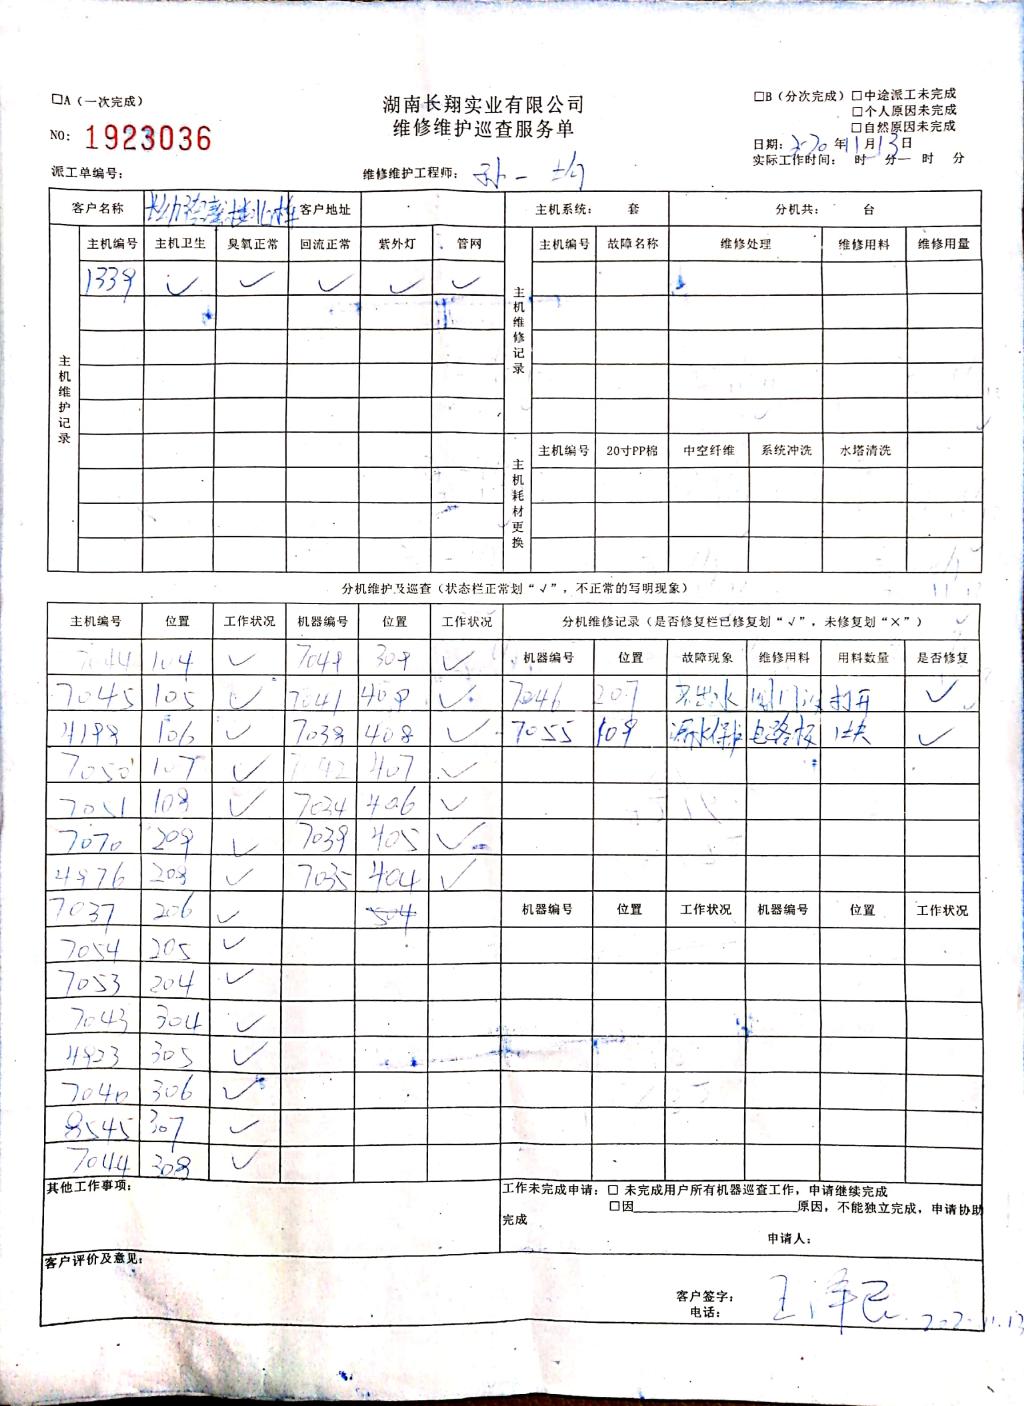 □A（一次完成）
湖南长翔实业有限公司
□B（分次完成） □中途派工未完成
□个人原因未完成
维修维护巡查服务单
□自然原因未完成
NO: 1923036
日期: 2020年11月13日
实际工作时间： 时 分— 时 分
派工单编号:
维修维护工程师: 孙一
客户名称 客户地址 主机系统: 套 分机共: 台
主机维护记录
主机编号 主机卫生 臭氧正常 回流正常 紫外灯 管网
1339 ✓ ✓ ✓ ✓ ✓
主机维修记录
主机编号 故障名称 维修处理 维修用料 维修用量
主机耗材更换
主机编号 20寸PP棉 中空纤维 系统冲洗 水塔清洗
分机维护及巡查（状态栏正常划“√”，不正常的写明现象）
主机编号 位置 工作状况 机器编号 位置 工作状况
7044 104 ✓ 7049 309 ✓
7045 105 ✓ 7041 409 ✓
4199 106 ✓ 7038 408 ✓
7050 107 ✓ 407 ✓
7051 108 ✓ 7034 406 ✓
7070 209 ✓ 7039 405 ✓
4976 208 ✓ 7035 404 ✓
7037 206 ✓ 504
7054 205 ✓
7053 204 ✓
7043 304 ✓
4923 305 ✓
7040 306 ✓
8545 307 ✓
7044 308 ✓
分机维修记录（是否修复栏已修复划“√”，未修复划“×”）
机器编号 位置 故障现象 维修用料 用料数量 是否修复
7046 207 不出水 阀门 打开 ✓
7055 109 漏水保护 电路板 1块 ✓
机器编号 位置 工作状况 机器编号 位置 工作状况
其他工作事项:
工作未完成申请: □ 未完成用户所有机器巡查工作，申请继续完成
□因 原因，不能独立完成，申请协助
完成
申请人:
客户评价及意见:
客户签字: 王泽民
电话: 2020.11.13